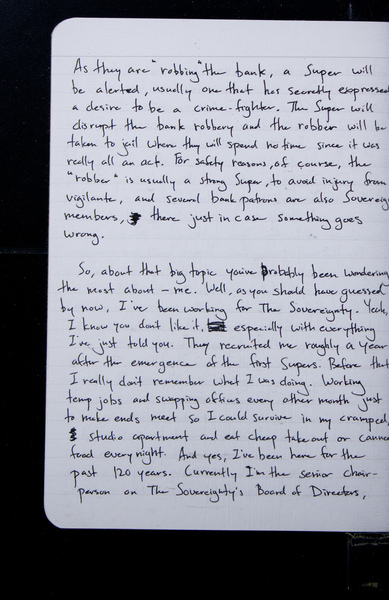 As they are "robbing" the bank, a Super will
be alerted, usually one that has secretly expressed
a desire to be a crime-fighter. The Super will
disrupt the bank robbery and the robber will be
taken to jail where they will spend no time since it was
really all an act. For safety reasons, of course, the
"robber" is usually a strong Super, to avoid injury from
vigilante, and several bank patrons are also Sovereign
members, there just in case something goes
wrong.
So, about that big topic you've probably been wondering
the most about – me. Well, as you should have guessed
by now, I've been working for The Sovereignty. Yeah,
I know you don't like it, especially with everything
I've just told you. They recruited me roughly a year
after the emergence of the first Supers. Before that
I really don't remember what I was doing. Working
temp jobs and swapping offices every other month just
to make ends meet so I could survive in my cramped,
studio apartment and eat cheap take out or canned
food every night. And yes, I've been here for the
past 120 years. Currently I'm the senior chair-
person on The Sovereignty's Board of Directors,